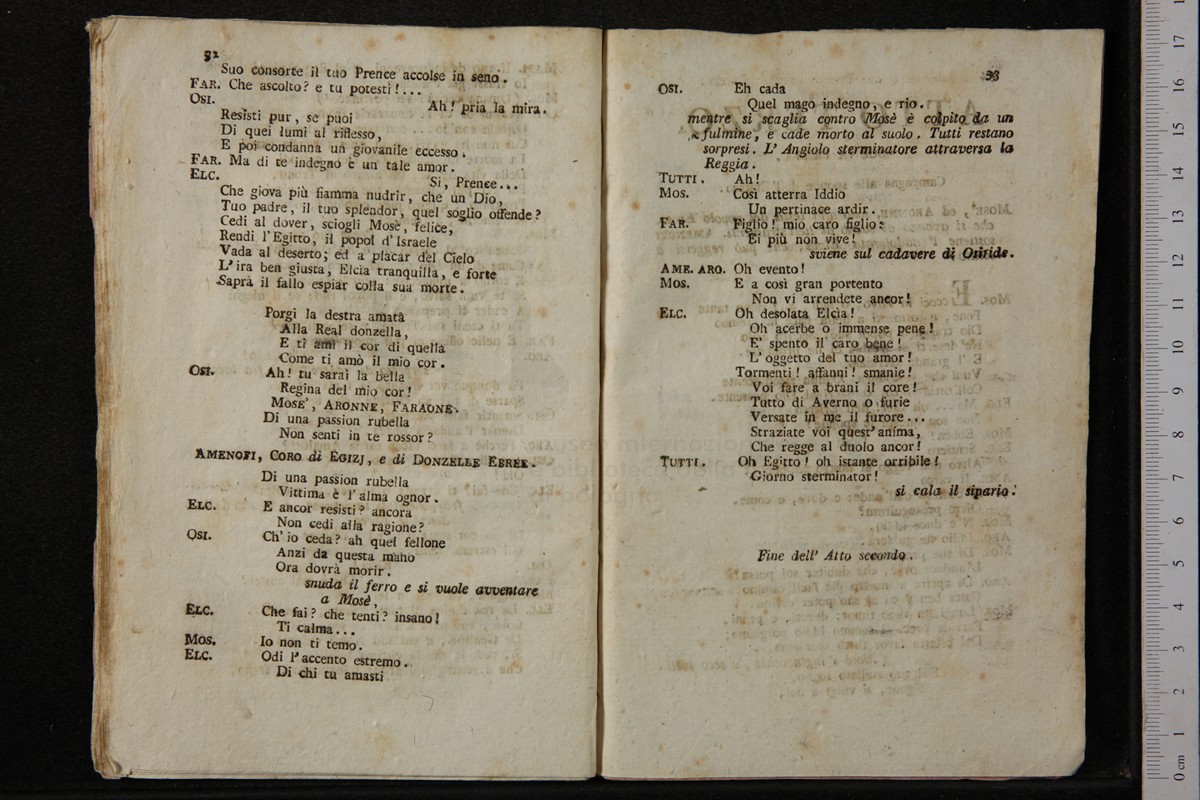 32
Suo consorte il tuo Prence accolse in seno.
FAR. Che ascolto? e tu potesti!...
OSI. Ah! pria la mira.
Resisti pur, se puoi
Di quei lumi al riflesso,
E poi condanna un giovanile eccesso.
FAR. Ma di te indegno è un tale amor.
ELC. Si, Prence...
Che giova più fiamma nudrir, che un Dio,
Tuo padre, il tuo splendor, quel soglio offende?
Cedi al dover, sciogli Mosè, felice,
Rendi l'Egitto, il popol d'Israele
Vada al deserto; ed a placar del Cielo
L'ira ben giusta, Elcìa tranquilla, e forte
Saprà il fallo espiar colla sua morte.
Porgi la destra amata
Alla Real donzella,
E ti ami il cor di quella
Come ti amò il mio cor.
OSI. Ah! tu sarai la bella
Regina del mio cor!
MOSE', ARONNE, FARAONE.
Di una passion rubella
Non senti in te rossor?
AMENOFI, CORO di EGIZJ, e di DONZELLE EBREE.
Di una passion rubella
Vittima è l'alma ognor.
ELC. E ancor resisti? ancora
Non cedi alla ragione?
OSI. Ch'io ceda? ah quel fellone
Anzi da questa mano
Ora dovrà morir.
snuda il ferro e si vuole avventare
a Mosè,
ELC. Che fai? che tenti? insano!
Ti calma...
MOS. Io non ti temo.
ELC. Odi l'accento estremo.
Di chi tu amasti
33
OSI. Eh cada
Quel mago indegno, e rio.
mentre si scaglia contro Mosè è colpito da un
fulmine, e cade morto al suolo. Tutti restano
sorpresi. L'Angiolo sterminatore attraversa la
Reggia.
TUTTI. Ah!
MOS. Così atterra Iddio
Un pertinace ardir.
FAR. Figlio! mio caro figlio:
Ei più non vive!
sviene sul cadavere di Osiride.
AME. ARO. Oh evento!
MOS. E a così gran portento
Non vi arrendete ancor!
ELC. Oh desolata Elcìa!
Oh acerbe o immense pene!
E' spento il caro bene!
L'oggetto del tuo amor!
Tormenti! affanni! smanie!
Voi fare a brani il core!
Tutto di Averno o furie
Versate in me il furore...
Straziate voi quest'anima,
Che regge al duolo ancor!
TUTTI. Oh Egitto! oh istante orribile!
Giorno sterminator!
si cala il sipario.
Fine dell'Atto secondo.